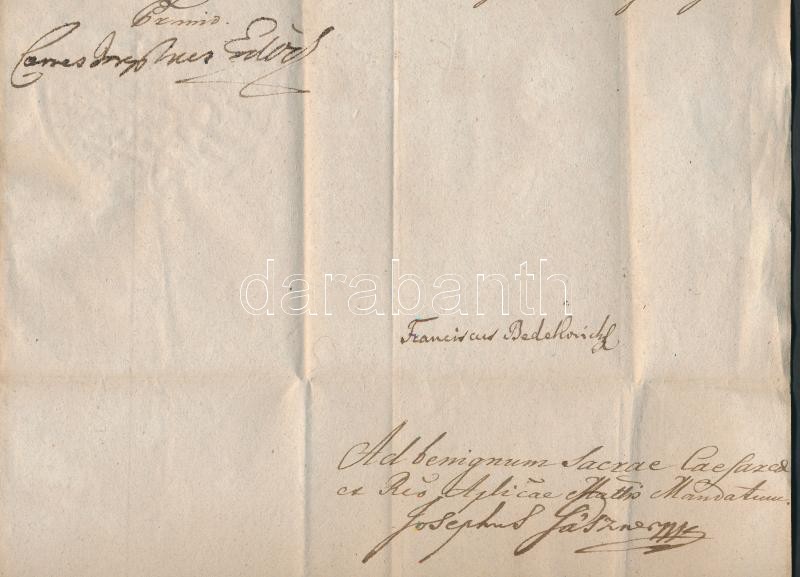 Comes Josephus Erdődy
darabanth
Franciscus Bedekovich
Ad benignum Sacrae Caesareae
et Reö Aplicae Mattis Mandatum.
Josephus